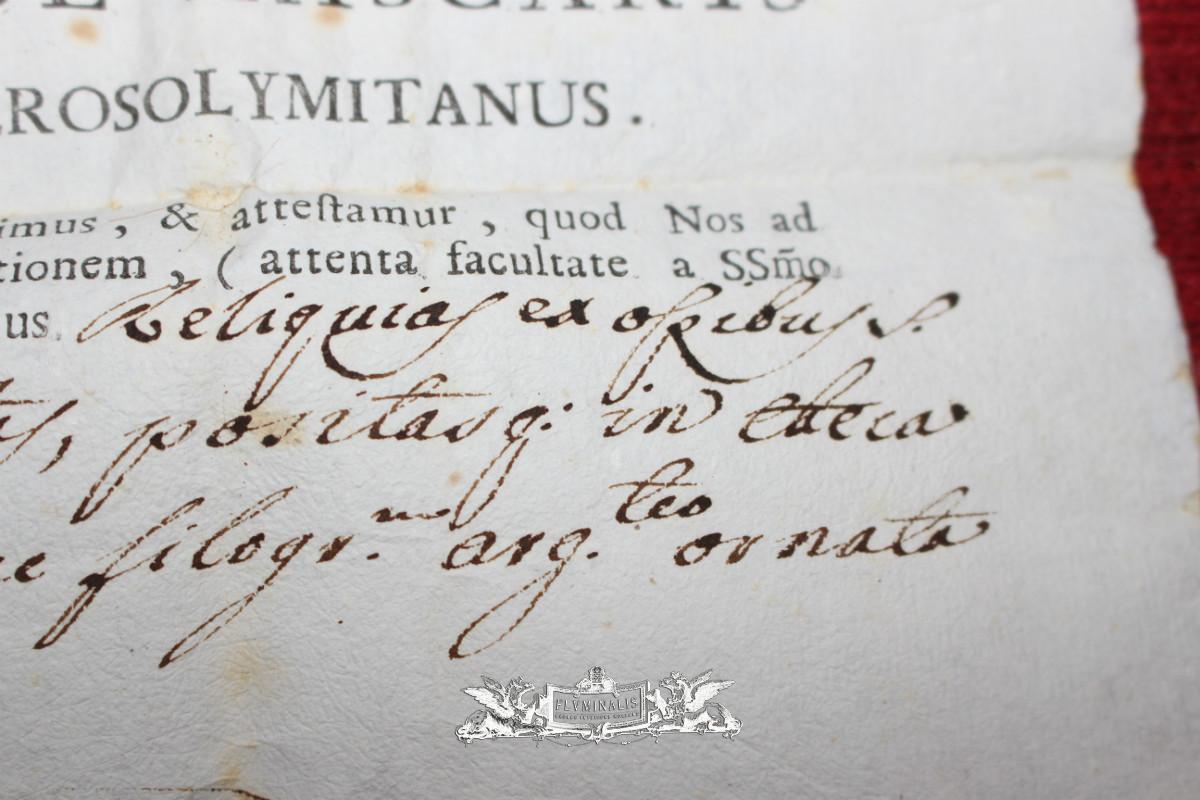 EROSOLYMITANUS.
imus, & atteſtamur, quod Nos ad
tionem, (attenta facultate a SSm̃o
us Reliquias ex oſsibus S.
positasq: in theca
filogr.m arg.teo ornata
FLVMINALIS